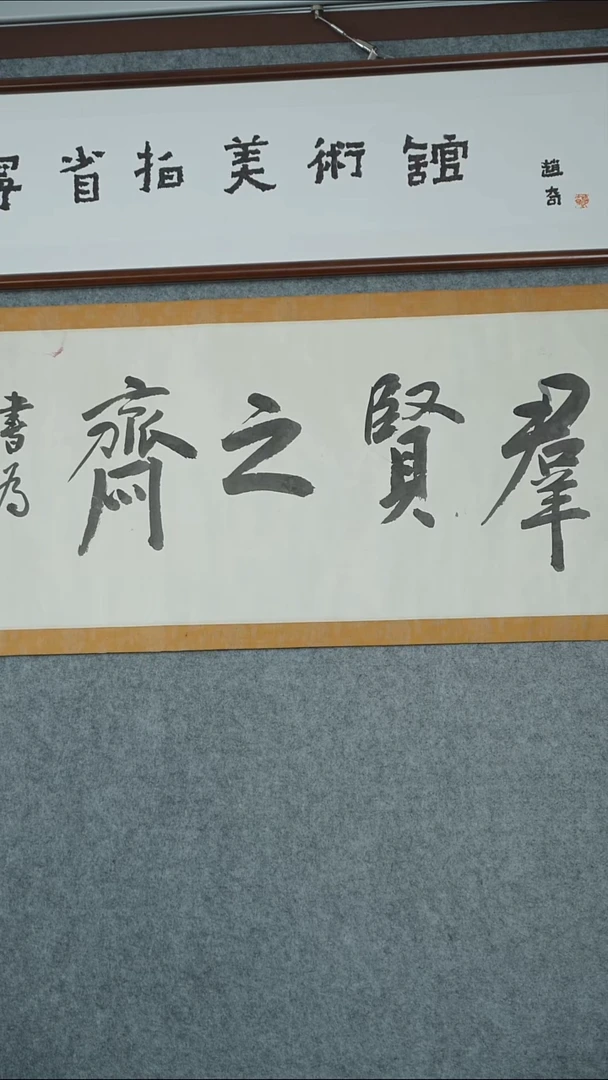 寧省拍美術館
趙奇
羣賢之齋
書為